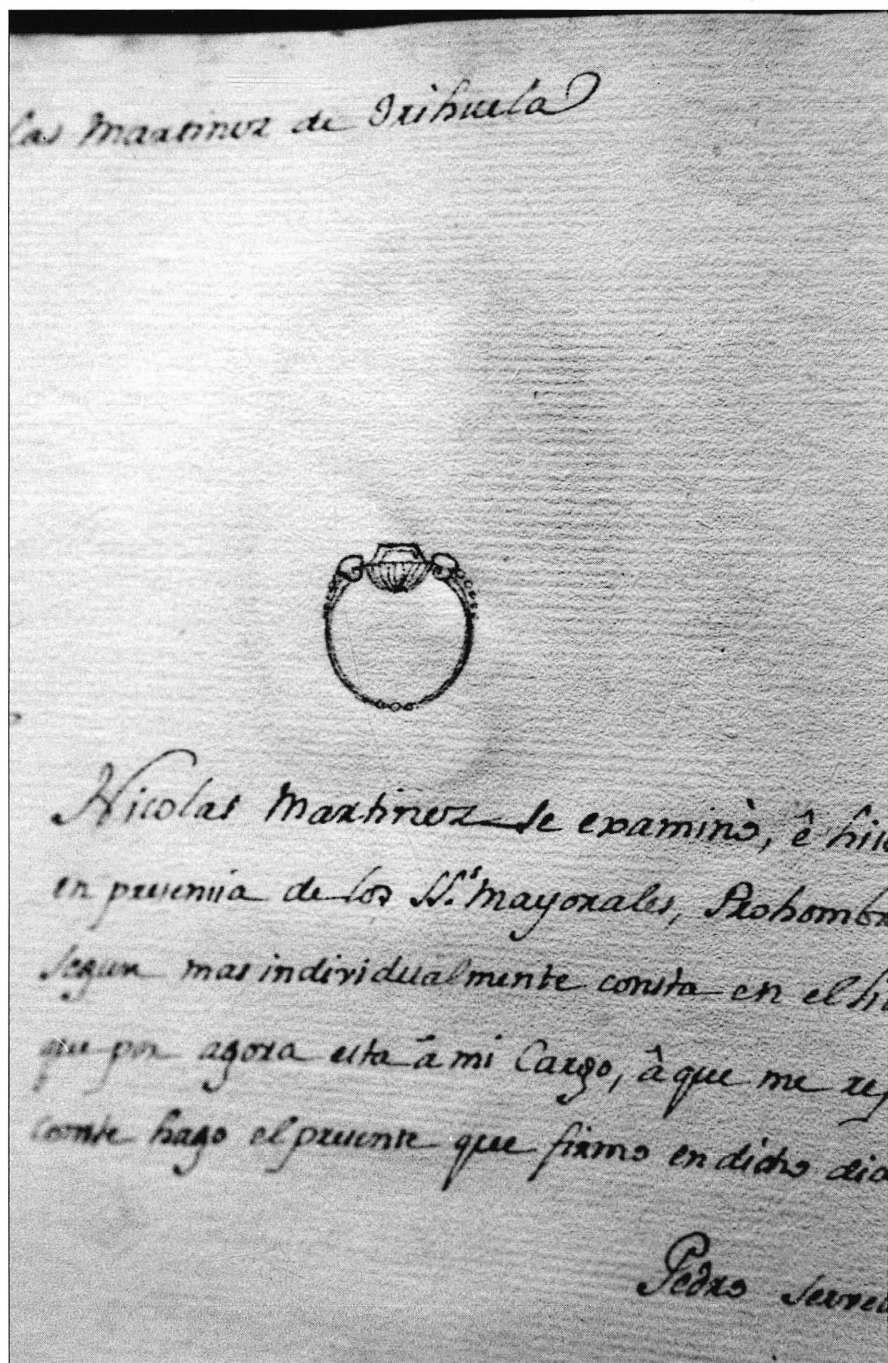 las Martinez de Orihuela
Nicolas Martinez se examinò, ê hizo
en presencia de los SS.s Mayorales, Prohomb
segun mas individualmente consta en el
que por agora esta â mi Cargo, â que me
conste hago el presente que firmo en dicho dia
Pedro